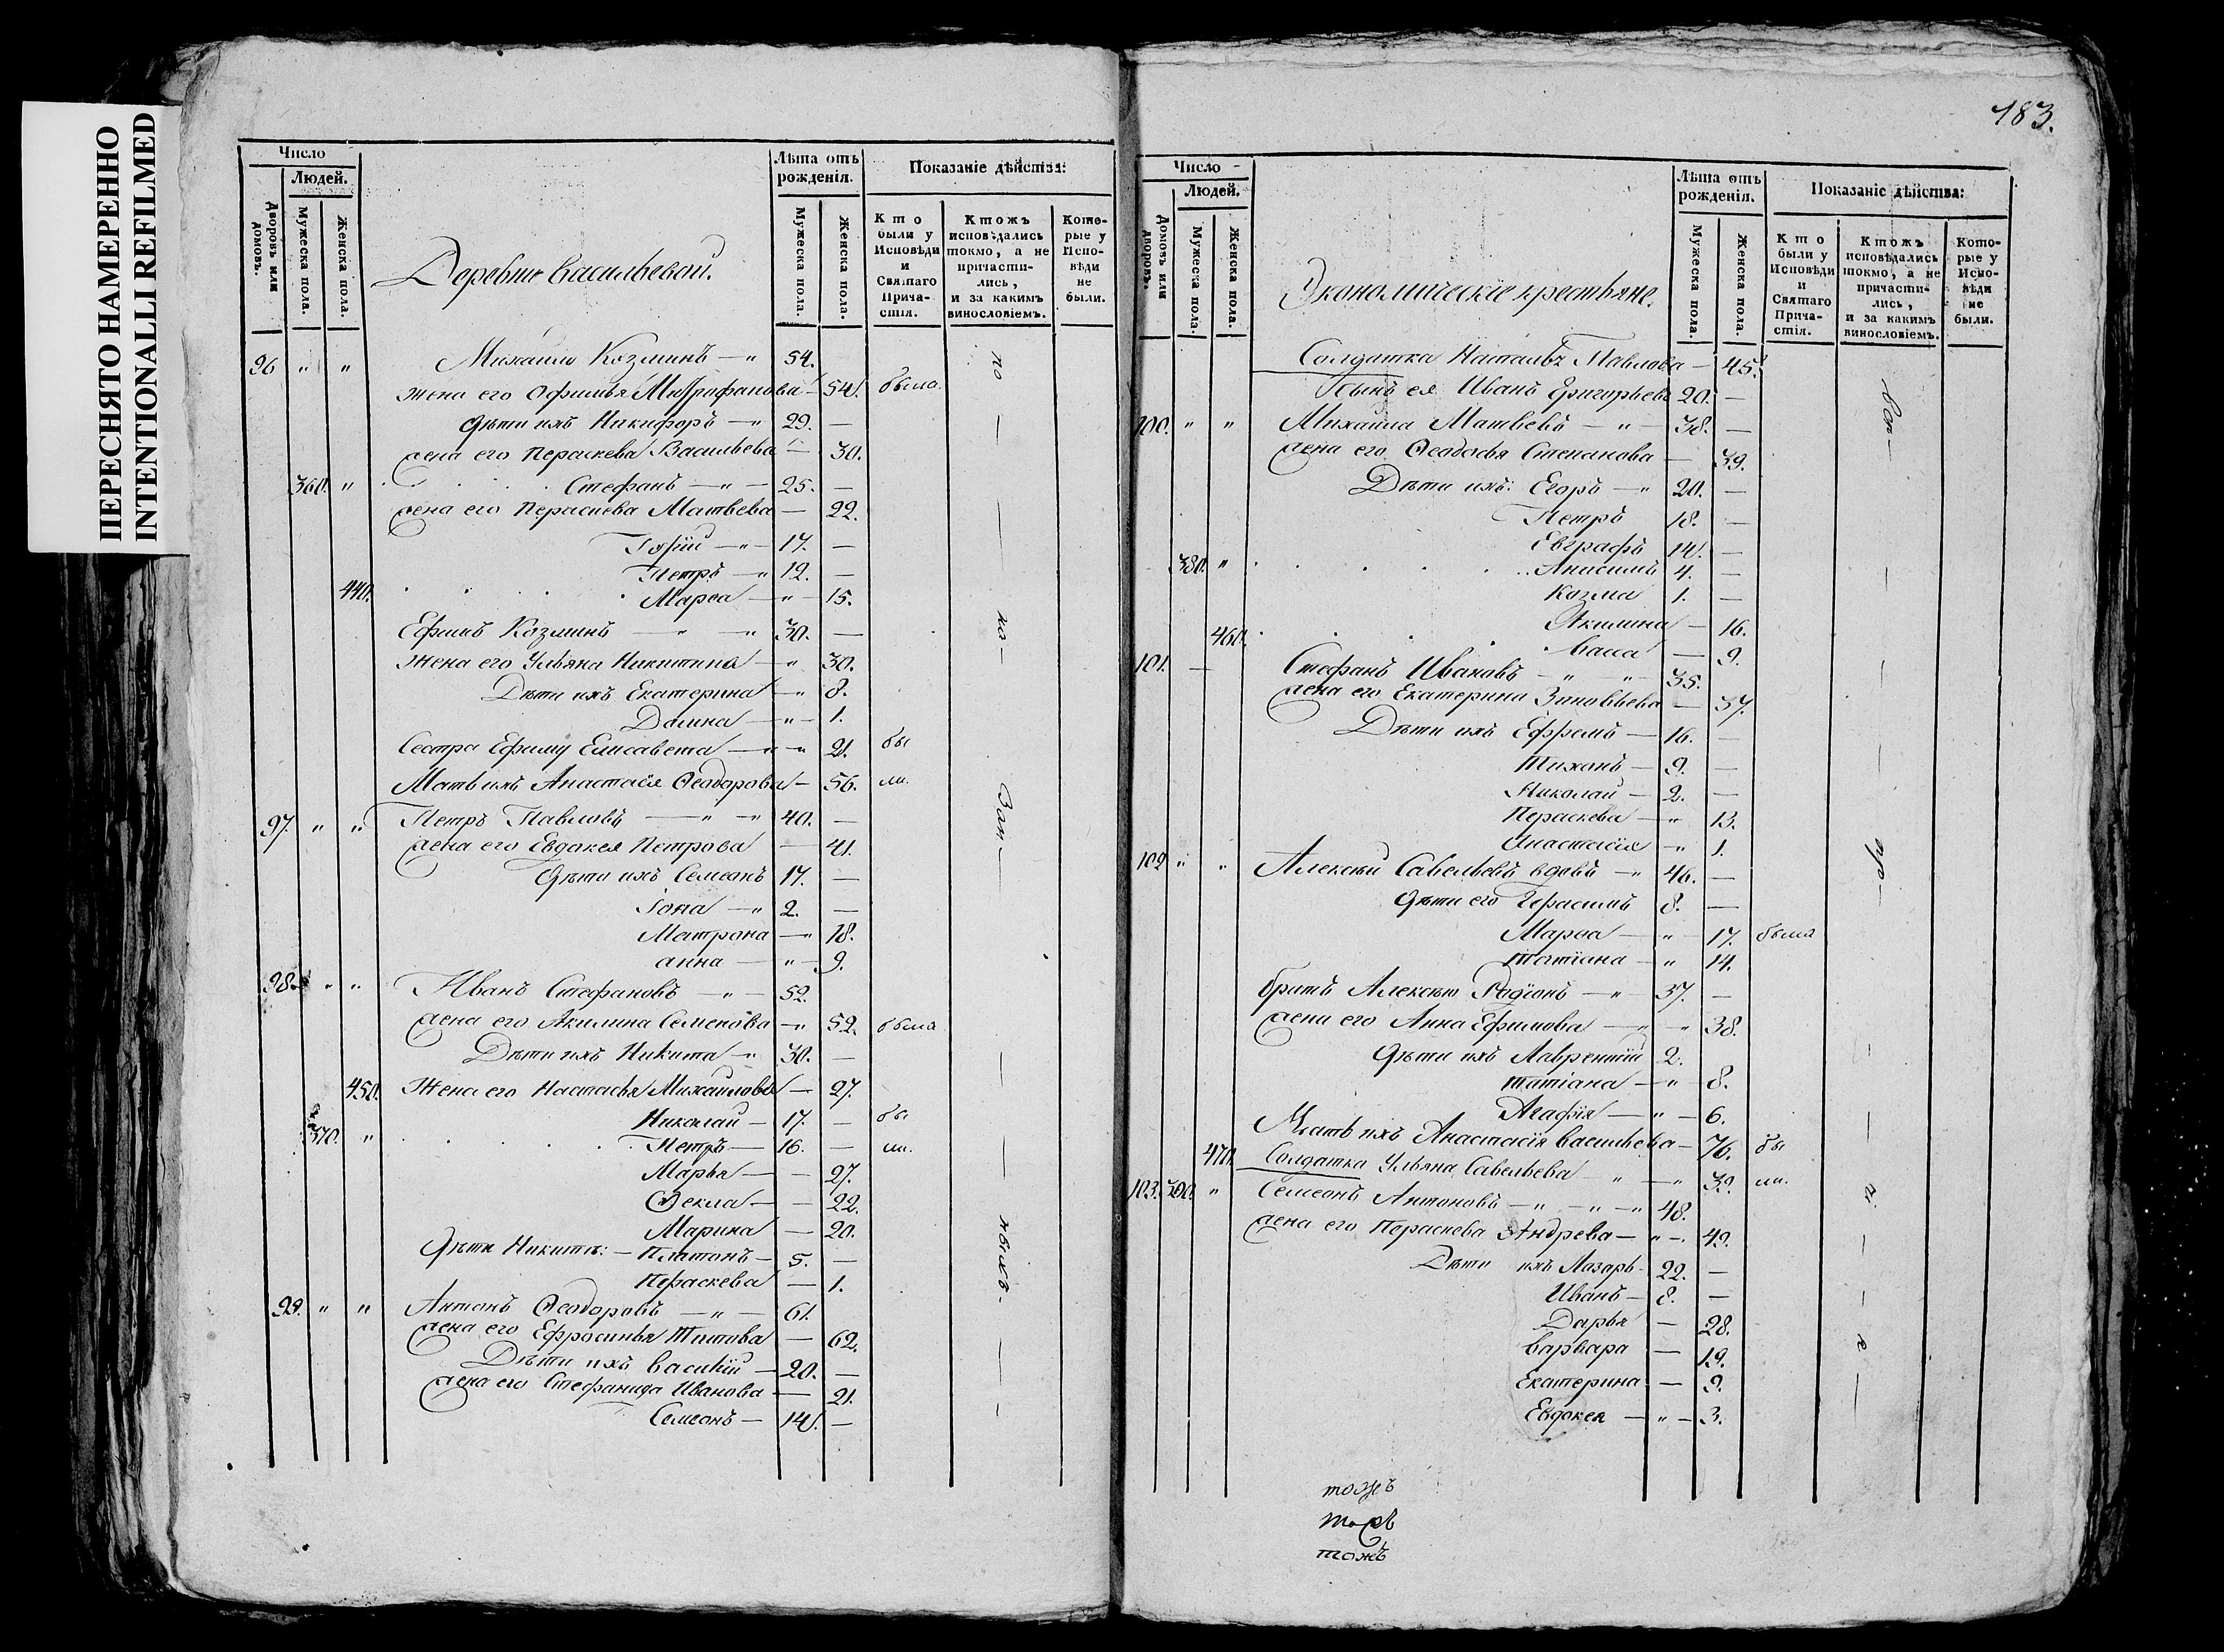 ПЕРЕСНЯТО НАМЕРЕННО
INTENTIONALLI REFILMED
Число
Людей.
Дворовъ или домовъ.
Мужеска пола.
Женска пола.
Деревни Васильевой.
Лѣта отъ рожденія.
Мужеска пола.
Женска пола.
Показаніе дѣйства:
Кто были у Исповѣди и Святаго Причастія.
Ктожъ исповѣдались токмо, а не причастились, и за какимъ винословіемъ.
Которые у Исповѣди не были.
96 " " Михаилъ Козминъ — " 54. по
жена его Офимья Митрофанова — 54. была
Дѣти ихъ Никифоръ — " 29. —
жена его Пераскева Васильева — 30.
360. " Стефанъ — " — 25. —
жена его Пераскева Матвѣева — 22.
— " — 17. —
Петръ — " 12. —
440. Марѳа — " — 15.
Ефимъ Козминъ — " — " 30. — но —
Жена его Ульяна Никитина — " 30.
Дѣти ихъ Екатерина — " 8.
Домна — " — 1.
Сестра Ефиму Елисавета — " — " 21. бы
Мать ихъ Анастасія Ѳеодорова — 56. ли.
97. " " Петръ Павловъ — " — " 40. —
жена его Евдокея Петрова — 41.
Дѣти ихъ Семеонъ 17. —
Іона — " 2. —
Матрона — " 18.
анна — " — 9.
98. " " Иванъ Стефановъ — " — 52.
жена его Акилина Семенова — " 52. была
Дѣти ихъ Никита — " 30. —
450. Жена его Настасья Михаилова — 27.
Николаи — 17. — бы
370. " Петръ — 16. — ли.
Марья — — 27.
Ѳекла — — 22.
Марина — 20.
Дѣти Никиты: — Платонъ — 5. —
Пераскева — 1.
99. " " Антонъ Ѳеодоровъ — " — 61.
жена его Ефросинья Титова — 62.
Дѣти ихъ Василій — 20. —
жена его Стефанида Иванова — 21.
Семеонъ — 14. —
183.
Число
Людей.
Домовъ или дворовъ.
Мужеска пола.
Женска пола.
Экономическіе крестьяне.
Лѣта отъ рожденія.
Мужеска пола.
Женска пола.
Показаніе дѣйства:
Кто были у Исповѣди и Святаго Причастія.
Ктожъ исповѣдались токмо, а не причастились, и за какимъ винословіемъ.
Которые у Исповѣди не были.
Солдатка Наталья Павлова — 45.
Сынъ ея Иванъ Григорьевъ 20. —
100. " " Михаила Матвѣевъ — " — 38. —
жена его Ѳеодосья Степанова — 39.
Дѣти ихъ: Егоръ — " 20. —
Петръ 18. —
Евграфъ 14. —
380. " Анисимъ 4. —
Козма 1. —
460. Акилина — 16.
Васса — 9.
101. — Стефанъ Ивановъ — " — " — 35.
жена его Екатерина Зиновьева — 37.
Дѣти ихъ Ефремъ — 16. —
Тихонъ — 9. —
Николаи — 2. —
Пераскева — " 13.
Анастасія — " 1.
102 " " Алексѣи Савельевъ вдовъ — " 46. — пр —
Дѣти его Герасимъ 8. —
Марѳа — " — 17. была
Татіана — " 14.
братъ Алексѣю Родіонъ — " — 37. —
жена его Анна Ефимова — " — " 38.
Дѣти ихъ Лаврентій 2.
Татіана — " — 8.
Агафія — " — 6.
Мать ихъ Анастасія Васильева — 76. бы
470. Солдатка Ульяна Савельева — " — " 39. ли.
103. 390. " Семеонъ Антоновъ — " — " — " 48.
жена его Пераскева Андрева — " — 49.
Дѣти ихъ Лазарь — 22. —
Иванъ — 8. —
Дарья — 28.
Варвара — 19.
Екатерина — 9.
Евдокея — " — 3.
тожъ
тожъ
тожъ